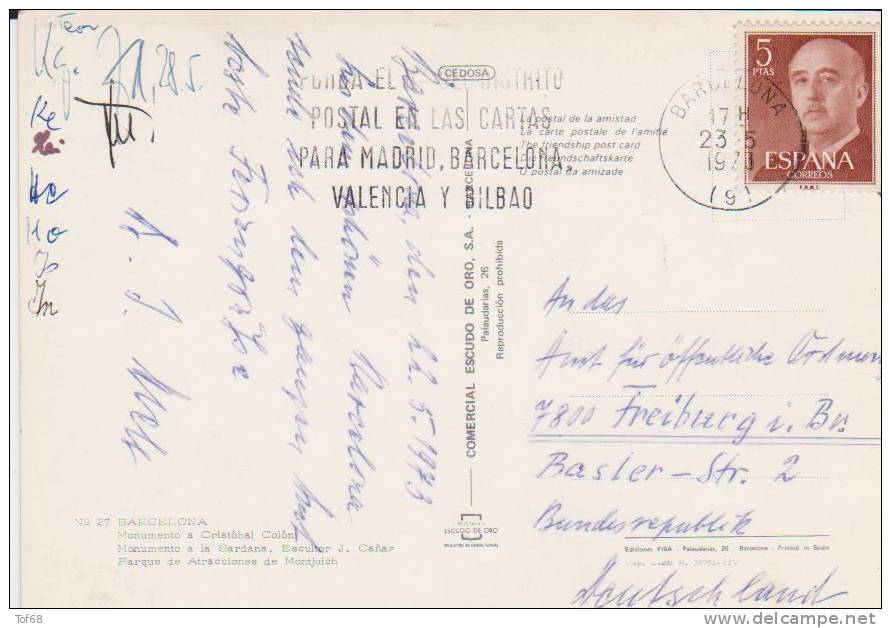 28.5.
Barcelona, den 22.5.1973
schönen Barcelona
sende ich dem ganzen Amt
Feriengrüße
CEDOSA
PONGA EL DISTRITO
POSTAL EN LAS CARTAS
PARA MADRID, BARCELONA,
VALENCIA Y BILBAO
La postal de la amistad
La carte postale de l'amitié
The friendship post card
Die Freundschaftskarte
O postal da amizade
BARCELONA
17H
23 5
1973
(9)
5
PTAS
ESPAÑA
CORREOS
F.N.M.T.
COMERCIAL ESCUDO DE ORO, S.A. - BARCELONA
Palaudarias, 26
Reproducción prohibida
An das
Amt für öffentliche Ordnung
7800 Freiburg i. Br.
Basler-Str. 2
Bundesrepublik
Deutschland
Nº 27 BARCELONA
Monumento a Cristóbal Colón
Monumento a la Sardana, Escultor J. Cañas
Parque de Atracciones de Montjuich
POSTALES
ESCUDO DE ORO
REGISTRO INTERNACIONAL
Ediciones FISA - Palaudarias, 26 - Barcelona - Printed in Spain
Dep. Legal B. 38951-XIV
Tof68